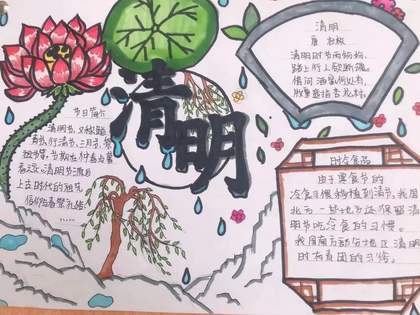 清明
节日简介
清明节,又称踏
青节、行清节、三月节、祭
祖节等,节期在仲春与暮
春之交。清明节源自
上古时代的祖先
信仰与春祭礼俗
……
清明
唐 杜牧
清明时节雨纷纷,
路上行人欲断魂。
借问酒家何处有,
牧童遥指杏花村。
时令食品
由于寒食节的
冷食习惯移植到清节,我国
北方一些地方还保留清
明节吃冷食的习惯。
我国南方部分地区清明
时有青团的习俗。